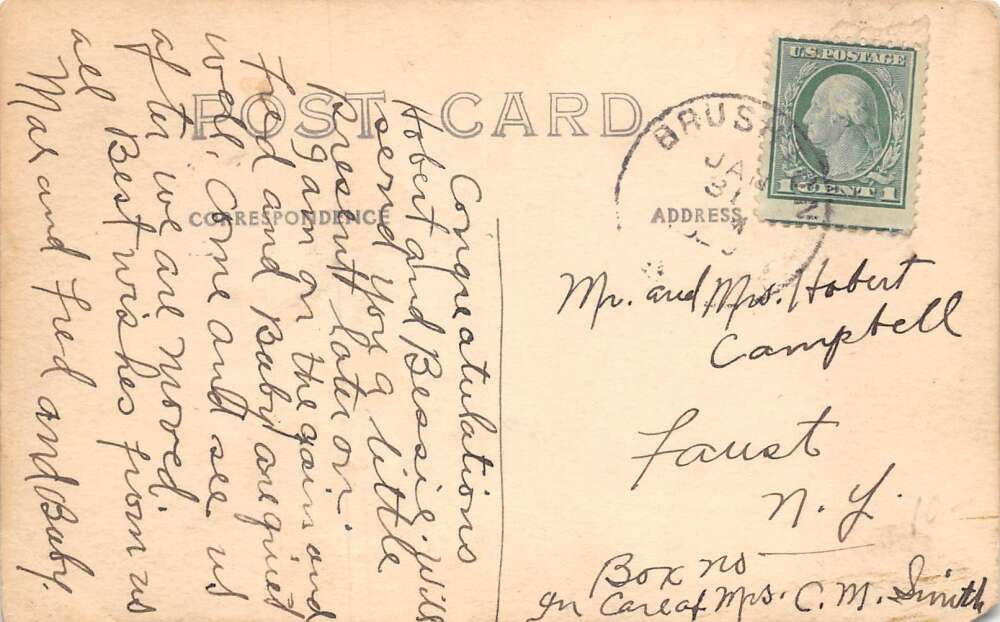 POST CARD
CORRESPONDENCE
ADDRESS
U.S. POSTAGE
1 CENT 1
BRUSH
JAN
31
Congratulations
Hobert and Bessie. will
send you a little
present later on.
I gain on the gain and
Fred and Baby are quiet
well. Come and see us
after we are moved.
Best wishes from us
all
Mar and Fred and Baby.
Mr. and Mrs. Hobert
Campbell
Faust
N. Y.
Box no
In Care of Mrs. C. M. Smith
10-